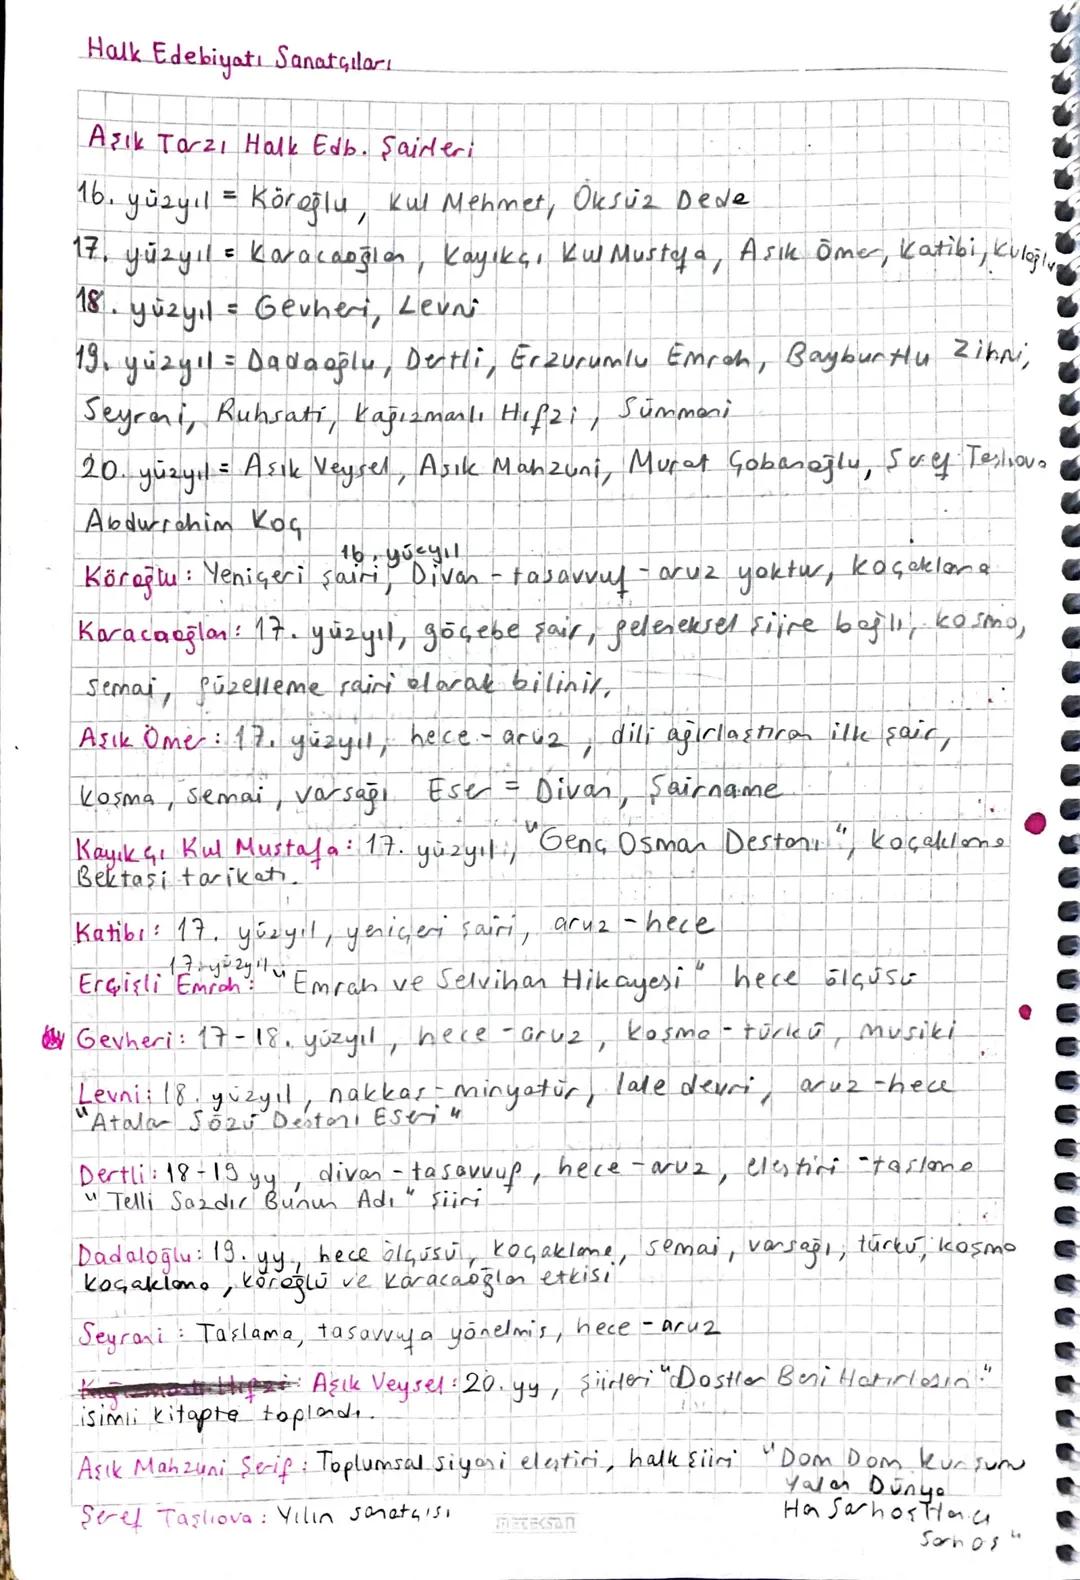 Halk Edebiyatı Sanatçıları
Aşık Tarzı Halk Edb. Şairleri
16. yüzyıl = Köroğlu, Kul Mehmet, Öksüz Dede
17. yüzyıl = Karacaoğlan, Kayıkçı Kul Mustafa, Asık Ömer, Katibi, Kuloğlu
18. yüzyıl = Gevheri, Levni
19. yüzyıl = Dadaoğlu, Dertli, Erzurumlu Emrah, Bayburtlu Zihni,
Seyrani, Ruhsati, Kağızmanlı Hıfzi, Sümmani
20. yüzyıl = Asık Veysel, Asık Mahzuni, Murat Çobanoğlu, Şeref Taşlıova
Abdurrahim Koç
16. yüzyıl
Köroğlu: Yeniçeri şairi, Divan - tasavvuf - aruz yoktur, koçaklama
Karacaoğlan: 17. yüzyıl, göçebe şair, geleneksel şiire bağlı, kosma,
semai, güzelleme şairi olarak bilinir.
Aşık Ömer: 17. yüzyıl, hece - aruz, dili ağırlaştıran ilk şair,
koşma, semai, varsağı Eser = Divan, Şairname
Kayıkçı Kul Mustafa: 17. yüzyıl, "Genç Osman Destanı", koçaklama
Bektaşi tarikatı.
Katibi: 17. yüzyıl, yeniçeri şairi, aruz - hece
17. yüzyıl
Erçişli Emrah: "Emrah ve Selvihan Hikayesi" hece ölçüsü
Gevheri: 17-18. yüzyıl, hece - aruz, koşma - türkü, musiki
Levni: 18. yüzyıl, nakkaş - minyatür, lale devri, aruz - hece
"Atalar Sözü Destanı Eseri"
Dertli: 18-19 yy, divan - tasavvuf, hece - aruz, eleştiri - taşlama
"Telli Sazdır Bunun Adı" şiiri
Dadaloğlu: 19. yy, hece ölçüsü, koçaklama, semai, varsağı, türkü, koşma
koçaklama, köroğlu ve karacaoğlan etkisi
Seyrani: Taşlama, tasavvufa yönelmis, hece - aruz
Aşık Veysel: 20. yy, şiirleri "Dostlar Beni Hatırlasın"
isimli kitapta toplandı.
Aşık Mahzuni Şerif: Toplumsal siyasi eleştiri, halk şiiri "Dom Dom Kurşunu
Yalan Dünya
Şeref Taşlıova: Yılın sanatçısı
Ha Sarhoş Ha
Sarhoş"
meteksan